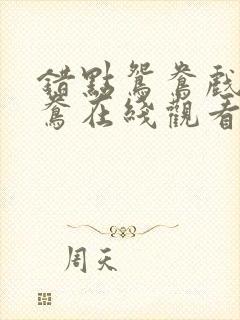 錯點鴛鴦戲
鴦在綫觀看
周天